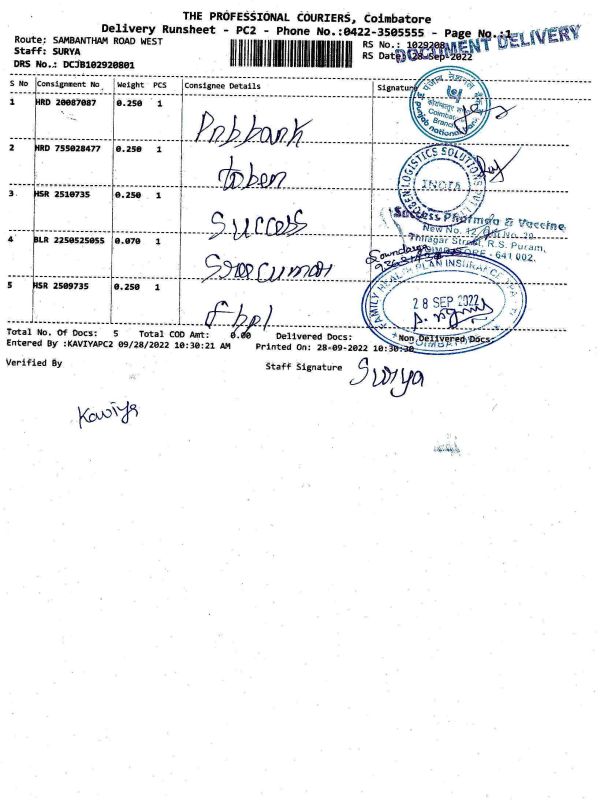 THE PROFESSIONAL COURIERS, Coimbatore
Delivery Runsheet - PC2 - Phone No.:0422-3505555 - Page No.:1
DOCUMENT DELIVERY
Route: SAMBANTHAM ROAD WEST
RS No.: 1029208
Staff: SURYA
RS Date: 28-Sep-2022
DRS No.: DCJB102920801
S No Consignment No Weight PCS Consignee Details Signature
1 HRD 20087087 0.250 1 Pnb bank
पंजाब नैशनल बैंक
Coimbatore
Branch
punjab national
2 HRD 755028477 0.250 1 toben
LOGISTICS SOLUTIONS
INDIA
3 HSR 2510735 0.250 1 Success
Success Pharmaa & Vaccine
New No. 12, Old No. 29
Thilagar Street, R.S. Puram,
COIMBATORE - 641 002.
4 BLR 2250525055 0.070 1 Sreecumar
Soundarya
5 HSR 2509735 0.250 1 fhpl
FAMILY HEALTH PLAN INSURANCE TPA
28 SEP 2022
COIMBATORE
Total No. Of Docs: 5 Total COD Amt: 0.00 Delivered Docs: Non Delivered Docs:
Entered By :KAVIYAPC2 09/28/2022 10:30:21 AM Printed On: 28-09-2022 10:30:30
Verified By Staff Signature Surya
Kaviya